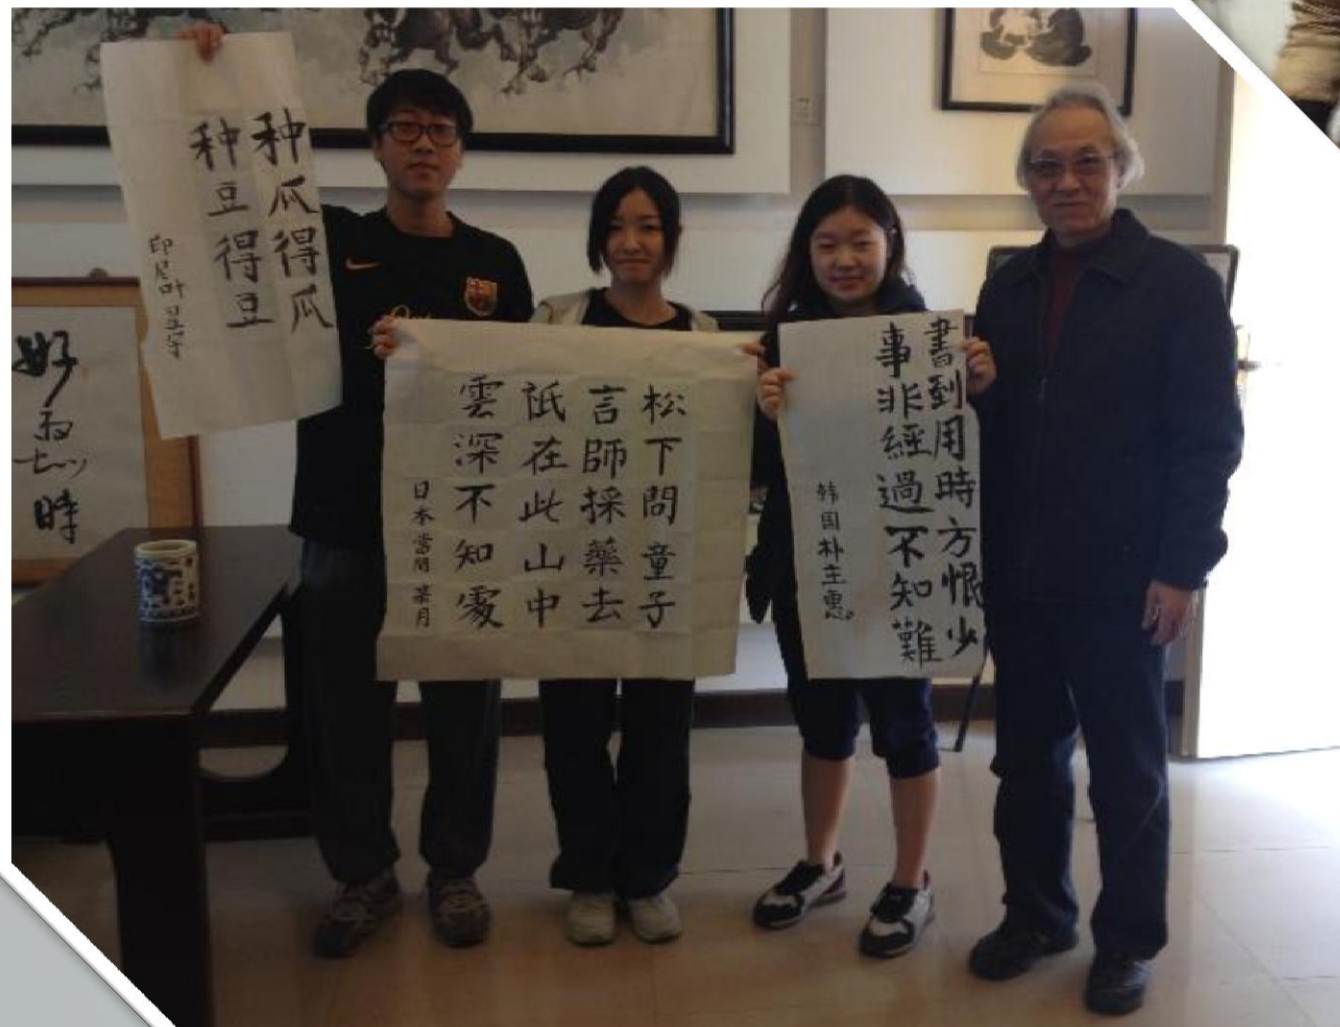 种瓜得瓜
种豆得豆
印尼叶
好雨知時
松下問童子
言師採藥去
祇在此山中
雲深不知處
日本當間菜月
書到用時方恨少
事非經過不知難
韩国朴主惠